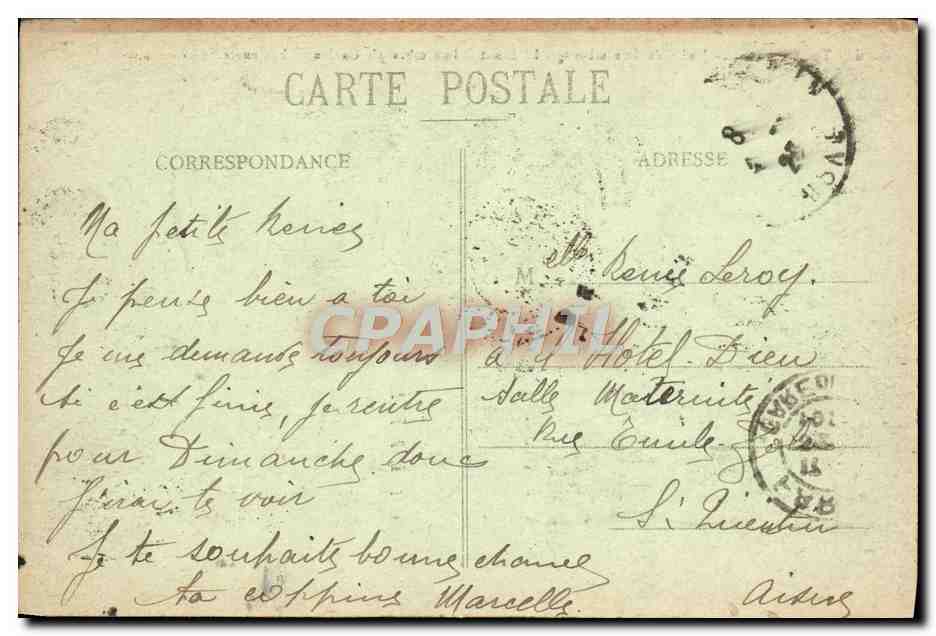 CARTE POSTALE
CORRESPONDANCE
ADRESSE
Ma petite Renée
Je pense bien a toi
Je me demande toujours
si c'est finie, je rentre
pour Dimanche donc
J'irai te voir
Je te souhaite bonne chance
ta copine Marcelle
M elle Renée Leroy.
à l'Hôtel-Dieu
Salle Maternité
Rue Emile
St Quentin
Aisne
CPAPHIL
8
GARE DE